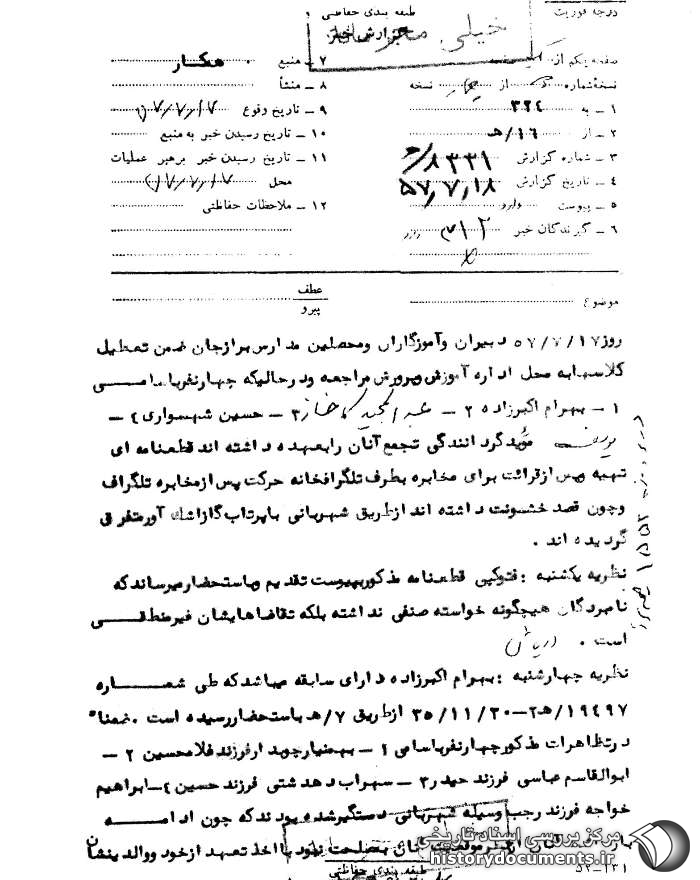 درجه فوریت
طبقه بندی حفاظتی
گزارش خبر
خیلی محرمانه
صفحه یکم از
نسخه شماره از نسخه
۱ – به ۳۲۴
۲ – از ۱۶/هـ
۳ – شماره گزارش ۸۳۳۱/
۴ – تاریخ گزارش ۵۷٫۷٫۱۸
۵ – پیوست دارد
۶ – گیرندگان خبر ۳۱۲
۷ – منبع همکار
۸ – منشأ
۹ – تاریخ وقوع ۵۷/۷/۱۷
۱۰ – تاریخ رسیدن خبر به منبع
۱۱ – تاریخ رسیدن خبر برهبر عملیات
محل ۵۷/۷/۱۷
۱۲ – ملاحظات حفاظتی
موضوع
عطف
پیرو
روز ۵۷/۷/۱۷ دبیران وآموزگاران ومحصلین مدارس برازجان ضمن تعطیل
کلاسهابه محل اداره آموزش وپرورش مراجعه ودرحالیکه چهارنفرباسامــی
۱ – بهرام اکبرزاده ۲ – عبدالمجید ۳ – حسین شهسواری ۴ –
یوسف مؤید گردانندگی تجمع آنان رابعهده داشته اند قطعنامه ای
تهیه وپس ازقرائت برای مخابره بطرف تلگرافخانه حرکت پس ازمخابره تلگراف
وچون قصد خشونت داشته اند ازطریق شهربانی باپرتاب گازاشک آورمتفرق
گردیده اند .
نظریه یکشنبه : فتوکپی قطعنامه مذکوربپیوست تقدیم وباستحضارمیرساندکه
نامبردگان هیچگونه خواسته صنفی نداشته بلکه تقاضاهایشان غیرمنطقــی
است .
نظریه چهارشنبه : بهرام اکبرزاده دارای سابقه میباشدکه طی شمـــاره
۱۹۴۹۷/هـ۲–۳۵/۱۱/۲۰ ازطریق ۷/هـ باستحضاررسیده است . ضمناً
درتظاهرات مذکورچهارنفرباسامی ۱ – بهمنیارجوبدار فرزندغلامحسین ۲ –
ابوالقاسم عباسی فرزند حیدر ۳ – سهراب دهدشتی فرزند حسین ۴– ابراهیم
خواجه فرزند رجب وسیله شهربانی دستگیرشده بودندکه چون ادامــه
مصلحت نبود بااخذ تعهد ازخود ووالدینشان
طبقه بندی حفاظتی
۵۲–۱۲۱
مرکز بررسی اسناد تاریخی
historydocuments.ir